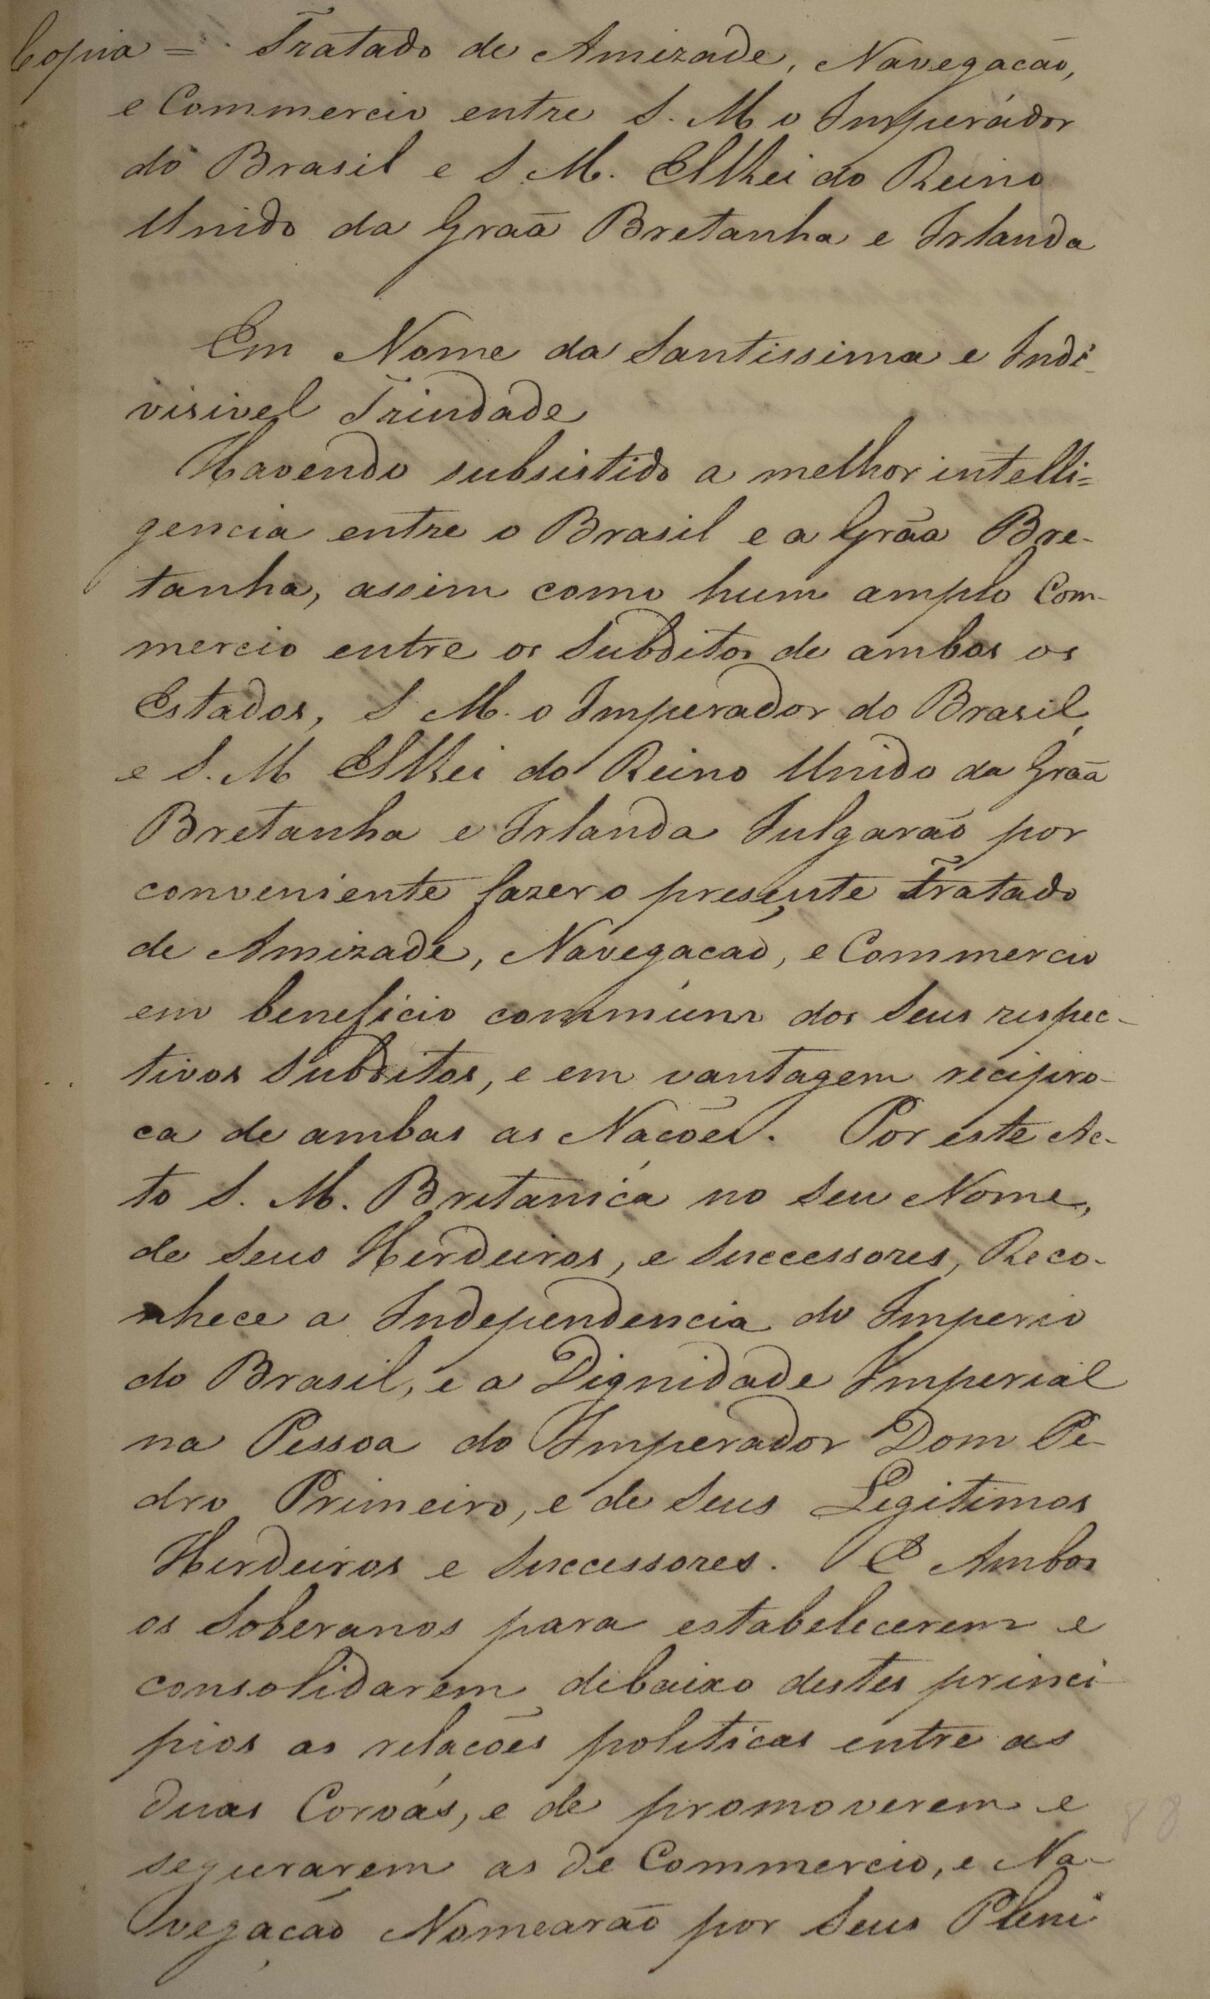 Copia = Tratado de Amizade, Navegação,
e Commercio entre S. M o Imperador
do Brasil e S M. ElRei do Reino
Unido da Graã Bretanha e Irlanda
Em Nome da Santissima e Indi-
visivel Trindade
Havendo subsistido a melhor intelli=
gencia entre o Brasil e a Grãa Bre-
tanha, assim como hum amplo Com-
mercio entre os Subditos de ambos os
Estados, S M. o Imperador do Brasil,
e S. M ElRei do Reino Unido da Graã
Bretanha e Irlanda Julgarão por
conveniente fazer o presente Tratado
de Amizade, Navegacaõ, e Commercio
em beneficio commum dos Seus respec-
tivos Subditos, e em vantagem recipro-
ca de ambas as Nacões. Por este Ac-
to S. M. Britanica no Seu Nome,
de Seus Herdeiros, e Successores, Reco-
nhece a Independencia do Imperio
do Brasil, e a Dignidade Imperial
na Pessoa do Imperador Dom Pe-
dro Primeiro, e de Seus Legitimos
Herdeiros e Successores. E Ambos
os Soberanos para estabelecerem e
consolidarem debaixo destes princi
pios as relações politicas entre as
duas Coroás, e de promoverem e
segurarem as de Commercio, e Na-
vegação Nomearão por Seus Pleni
88